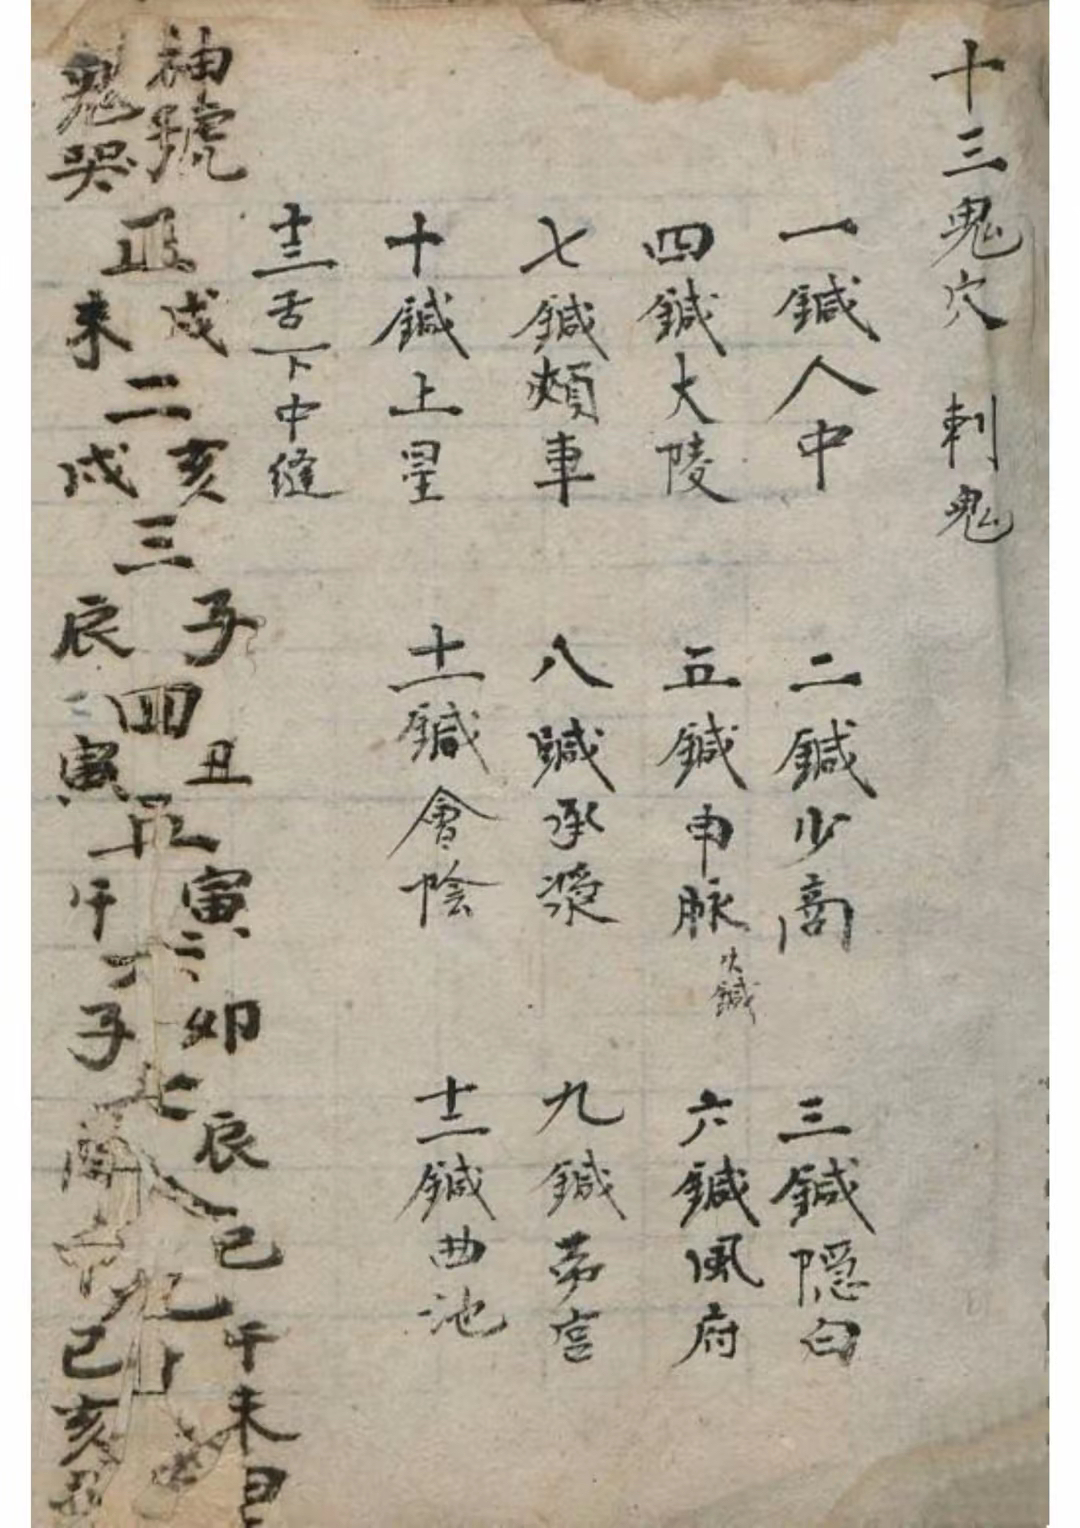 十三鬼穴 刺鬼
一鍼人中
二鍼少商
三鍼隱白
四鍼大陵
五鍼申脉 火鍼
六鍼風府
七鍼頰車
八鍼承漿
九鍼劳宫
十鍼上星
十一鍼會陰
十二鍼曲池
十三舌下中缝
神號
鬼哭
正
戌
未
二
亥
戌
三
子
辰
四
丑
寅
五
寅
午
六
卯
子
七
辰
八
巳
九
午
十
未
巳
亥
丑